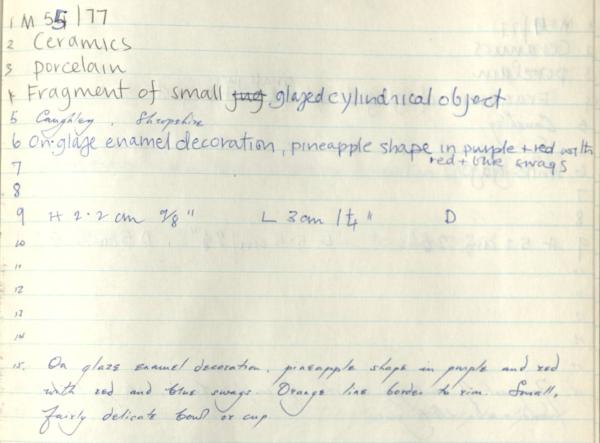 1 M 55/77
2 Ceramics
3 porcelain
4 Fragment of small jug glazed cylindrical object
5 Caughley, Shropshire
6 On-glaze enamel decoration, pineapple shape in purple + red with
red + blue swags
7
8
9 H 2.2 cm 7/8" L 3 cm 1 1/4" D
10
11
12
13
14
15. On glaze enamel decoration, pineapple shape in purple and red
with red and blue swags. Orange line border to rim. Small,
fairly delicate bowl or cup